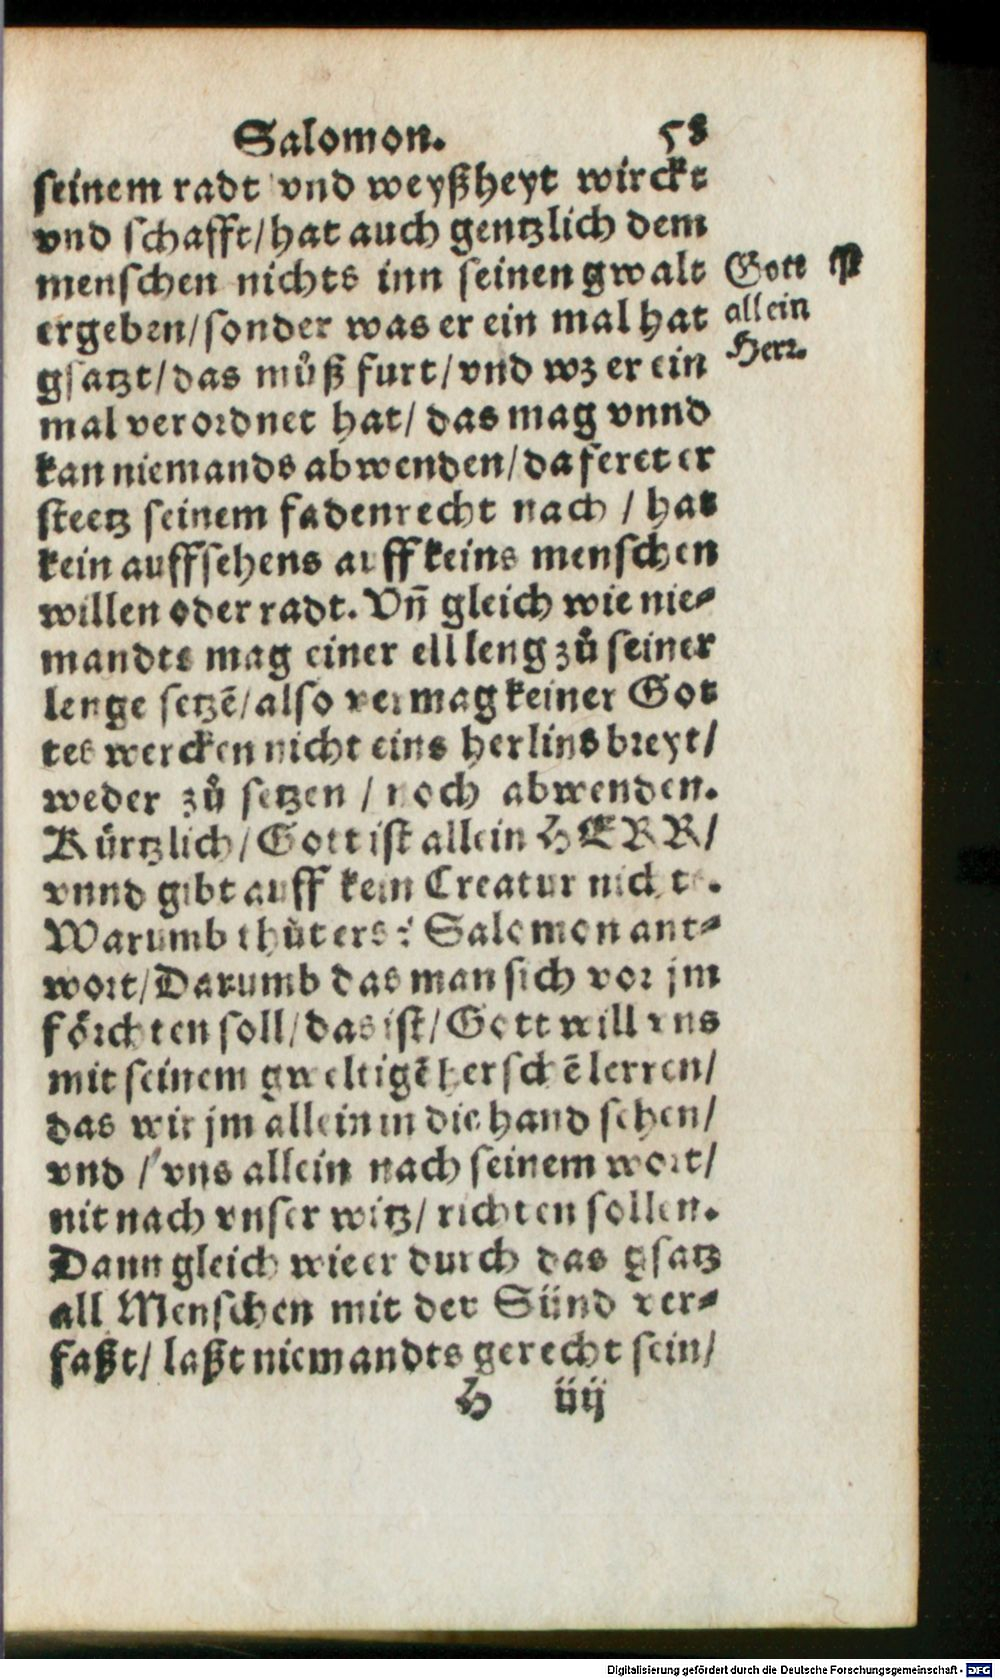 Salomon. 58
seinem radt vnd weyßheyt wirckt
vnd schafft/ hat auch gentzlich dem
menschen nichts inn seinen gwalt
ergeben/ sonder was er ein mal hat
gsatzt/ das můß furt/ vnd wz er ein
mal verordnet hat/ das mag vnnd
kan niemands abwenden/ da feret er
steetz seinem fadenrecht nach / hat
kein auffsehens auff keins menschen
willen oder radt. Vñ gleich wie nie-
mandts mag einer ell leng zů seiner
lenge setzē/ also vermag keiner Got
tes wercken nicht eins herlins breyt/
weder zů setzen / noch abwenden.
Kürtzlich/ Gott ist allein HERR/
vnnd gibt auff kein Creatur nichts.
Warumb thůt ers? Salomon ant-
wort/ Darumb das man sich vor jm
förchten soll/ das ist/ Gott will vns
mit seinem gweltigē herschē lerren/
das wir jm allein in die hand sehen/
vnd / vns allein nach seinem wort/
nit nach vnser witz/ richten sollen.
Dann gleich wie er durch das gsatz
all Menschen mit der Sünd ver-
faßt/ laßt niemandts gerecht sein/
H iiij
Gott ist
allein
Herr.
Digitalisierung gefördert durch die Deutsche Forschungsgemeinschaft - DFG